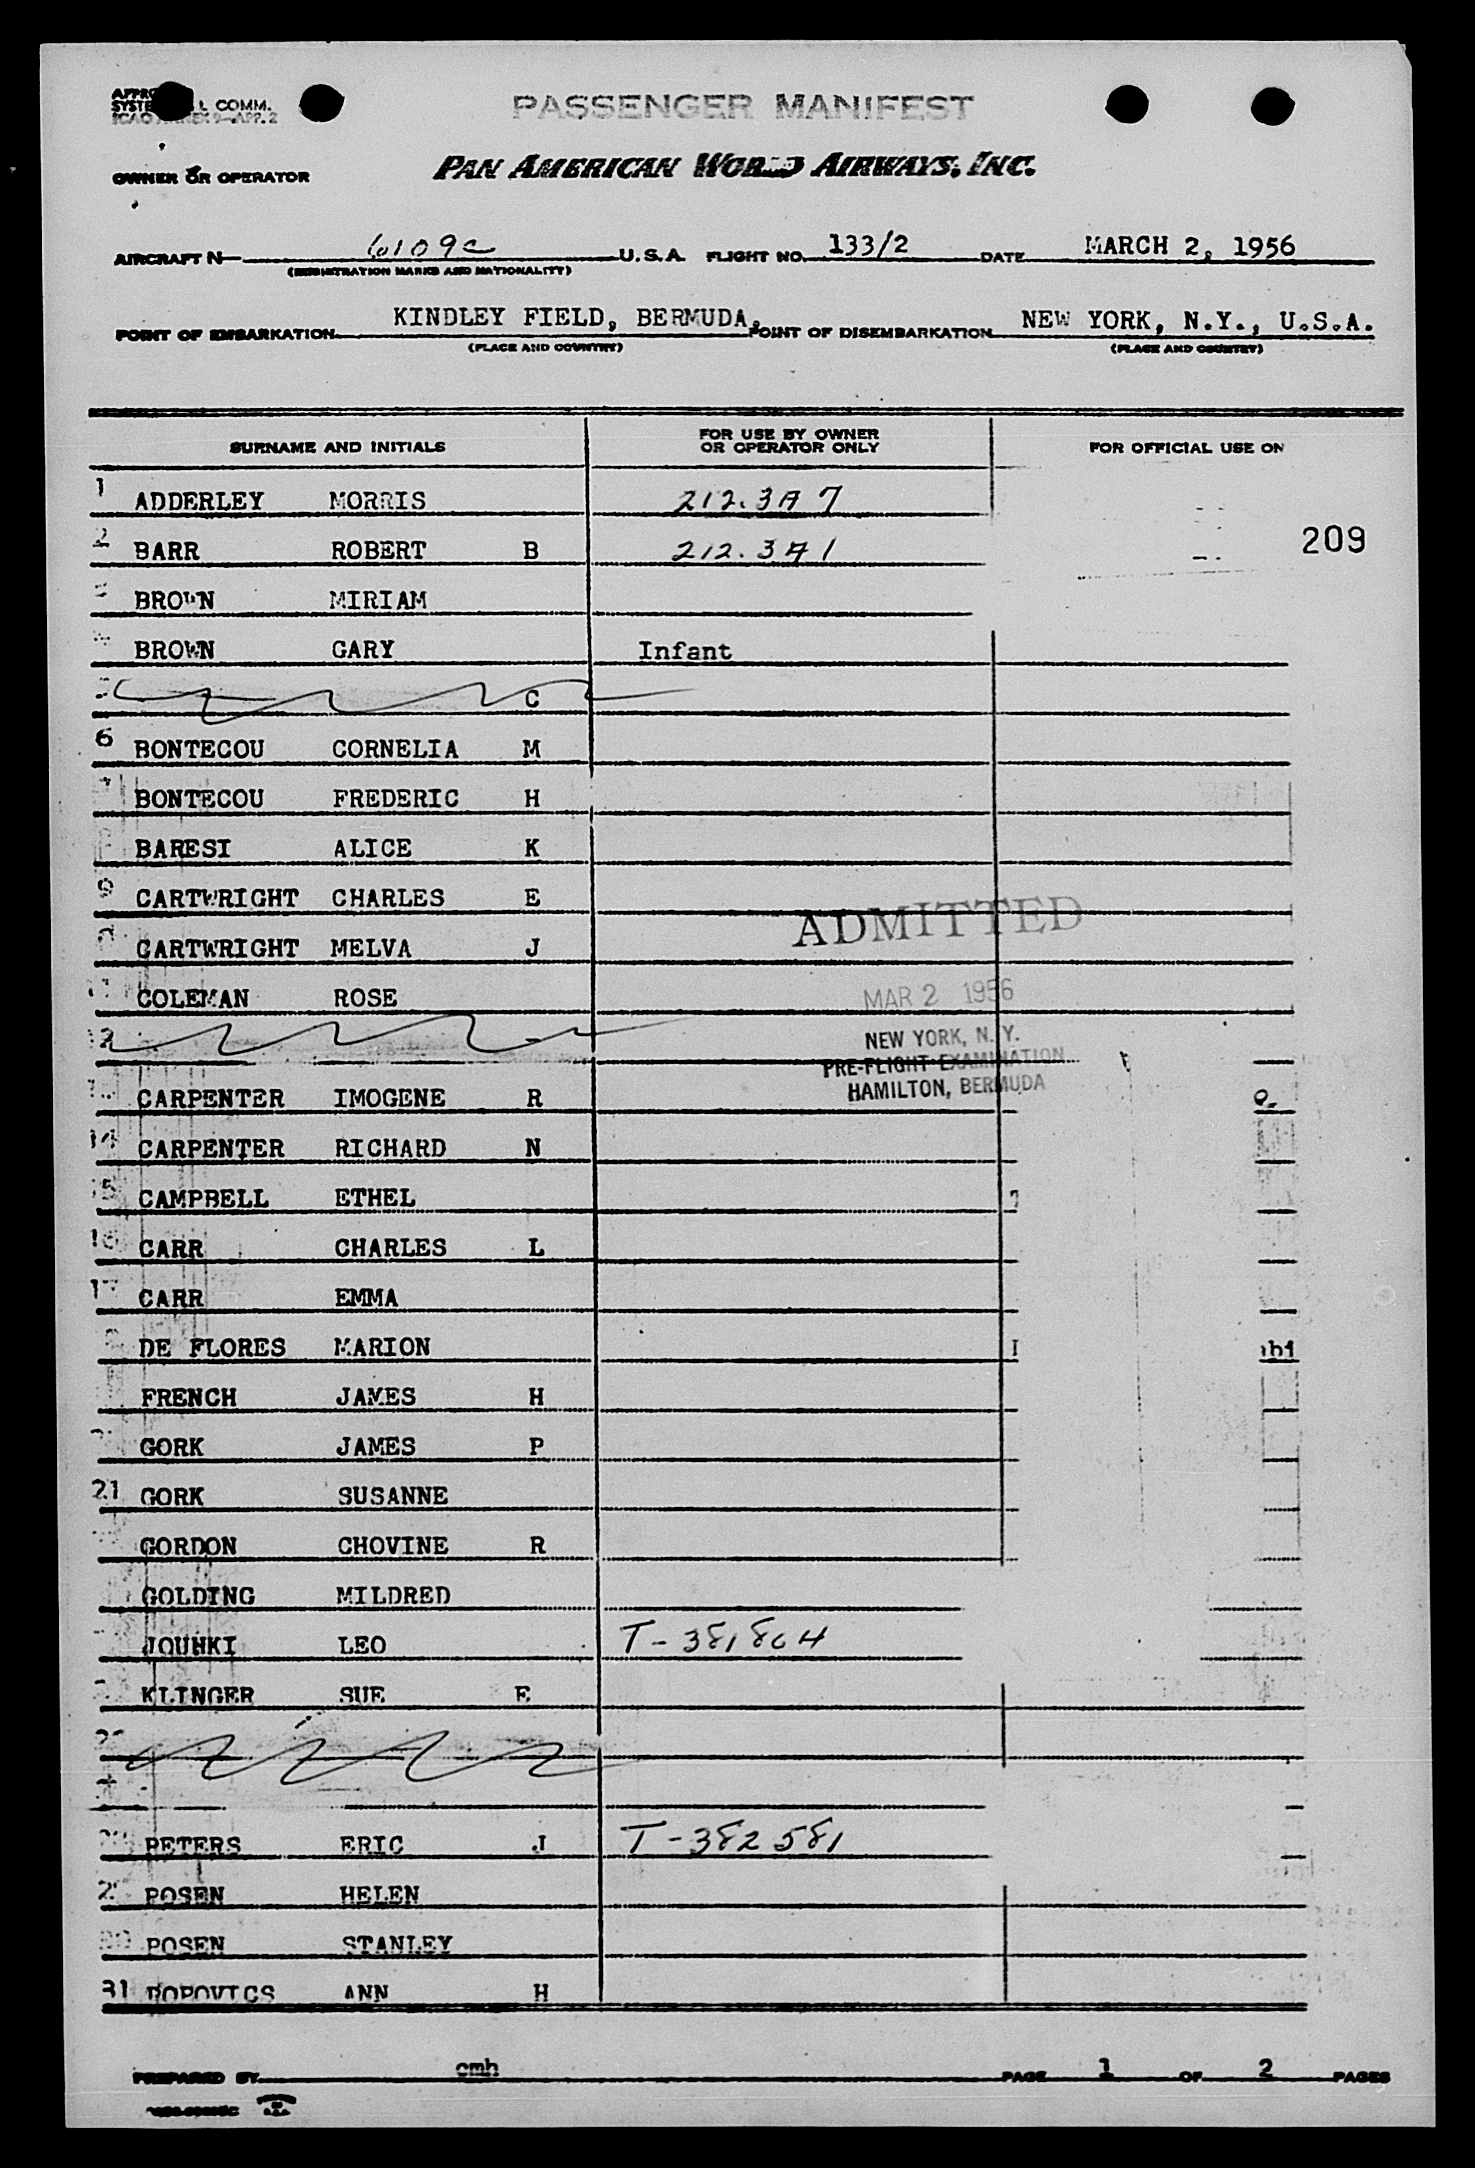 PASSENGER MANIFEST
L COMM.
OWNER OR OPERATOR
PAN AMERICAN WORLD AIRWAYS, INC.
AIRCRAFT N 6109C U.S.A. FLIGHT NO. 133/2 DATE MARCH 2, 1956
(REGISTRATION MARKS AND NATIONALITY)
POINT OF EMBARKATION KINDLEY FIELD, BERMUDA, POINT OF DISEMBARKATION NEW YORK, N.Y., U.S.A.
(PLACE AND COUNTRY) (PLACE AND COUNTRY)
SURNAME AND INITIALS FOR USE BY OWNER OR OPERATOR ONLY FOR OFFICIAL USE ON
1 ADDERLEY MORRIS 212.3A7
2 BARR ROBERT B 212.3A1 209
BROWN MIRIAM
BROWN GARY Infant
C
6 BONTECOU CORNELIA M
BONTECOU FREDERIC H
BARESI ALICE K
9 CARTWRIGHT CHARLES E
ADMITTED
CARTWRIGHT MELVA J
COLEMAN ROSE
MAR 2 1956
12
NEW YORK, N.Y.
PRE-FLIGHT EXAMINATION
HAMILTON, BERMUDA
CARPENTER IMOGENE R
14 CARPENTER RICHARD N
15 CAMPBELL ETHEL
16 CARR CHARLES L
17 CARR EMMA
DE FLORES MARION
FRENCH JAMES H
GORK JAMES P
21 GORK SUSANNE
GORDON CHOVINE R
GOLDING MILDRED
JOUHKI LEO T-381804
KLINGER SUE E
PETERS ERIC J T-382581
POSEN HELEN
POSEN STANLEY
31 POPOVICS ANN H
PREPARED BY cmh PAGE 1 OF 2 PAGES